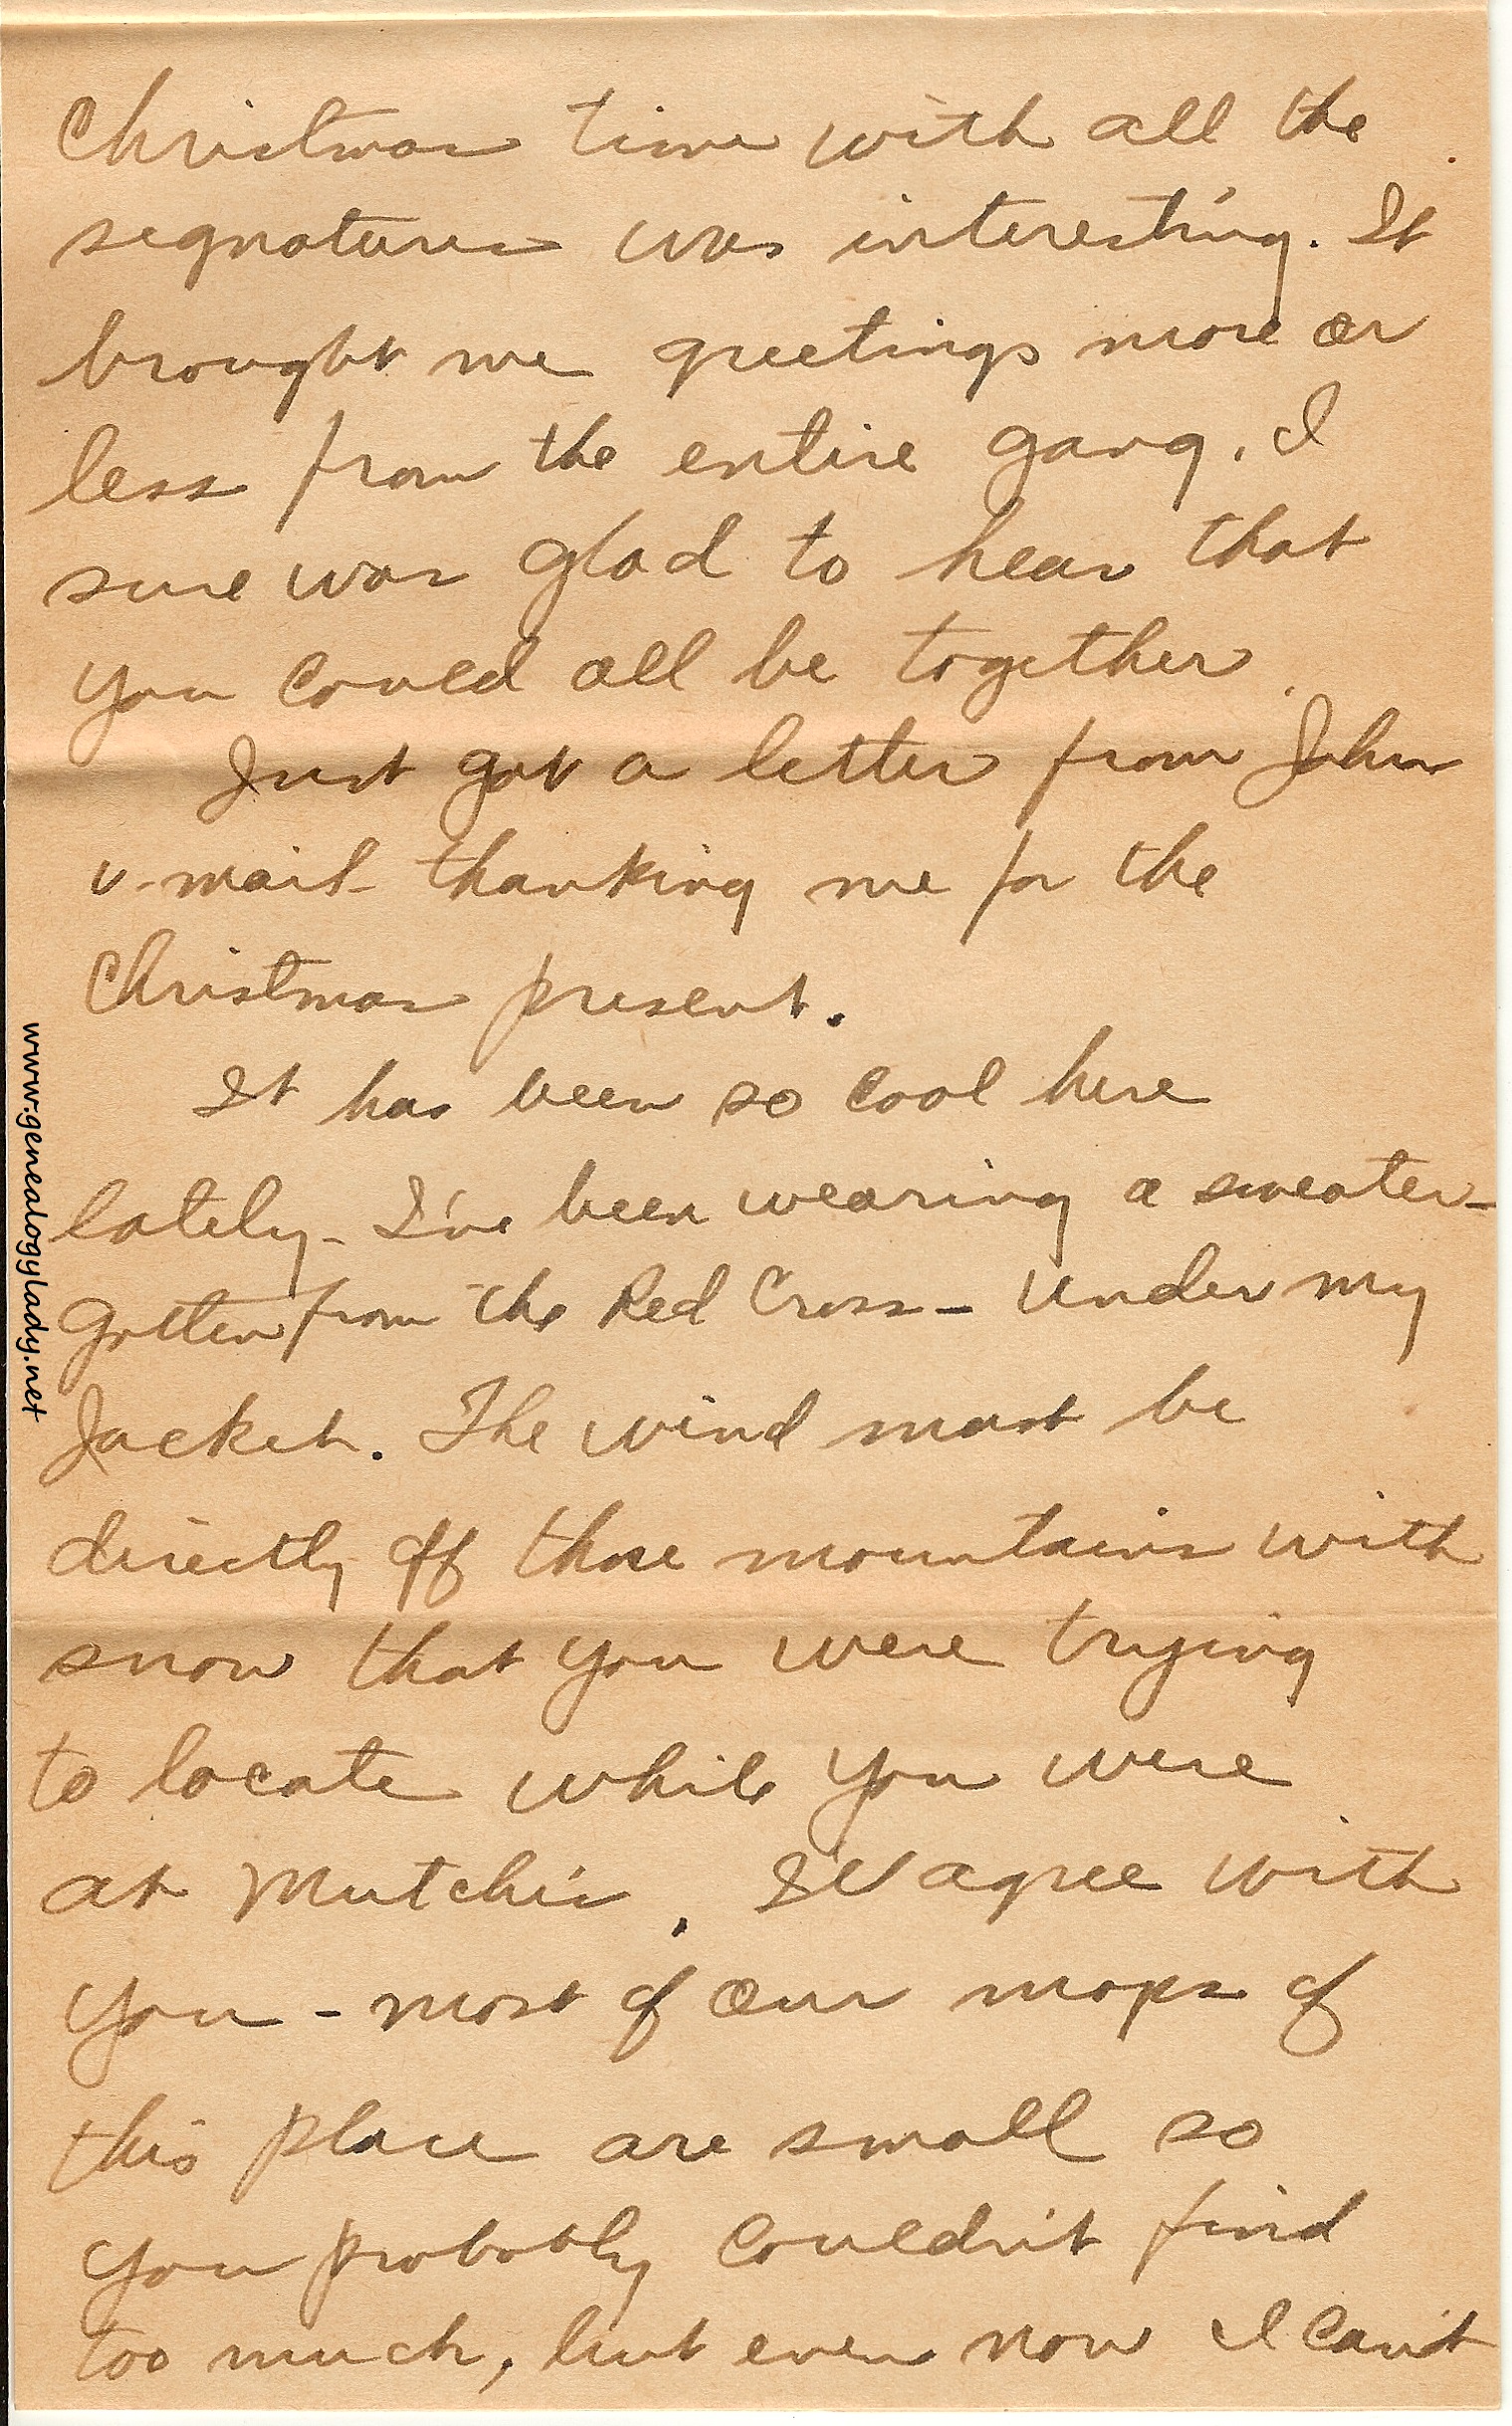 Christmas time with all the
signatures was interesting. It
brought me greetings more or
less from the entire gang. I
sure was glad to hear that
you could all be together.
Just got a letter from John
v-mail- thanking me for the
Christmas present.
It has been so cool here
lately- I've been wearing a sweater-
gotten from the Red Cross- under my
Jacket. The wind must be
directly off those mountains with
snow that you were trying
to locate while you were
at Mutchie's. I'll agree with
you - most of our maps of
this place are small so
you probably couldn't find
too much, but even now I can't
www.genealogylady.net